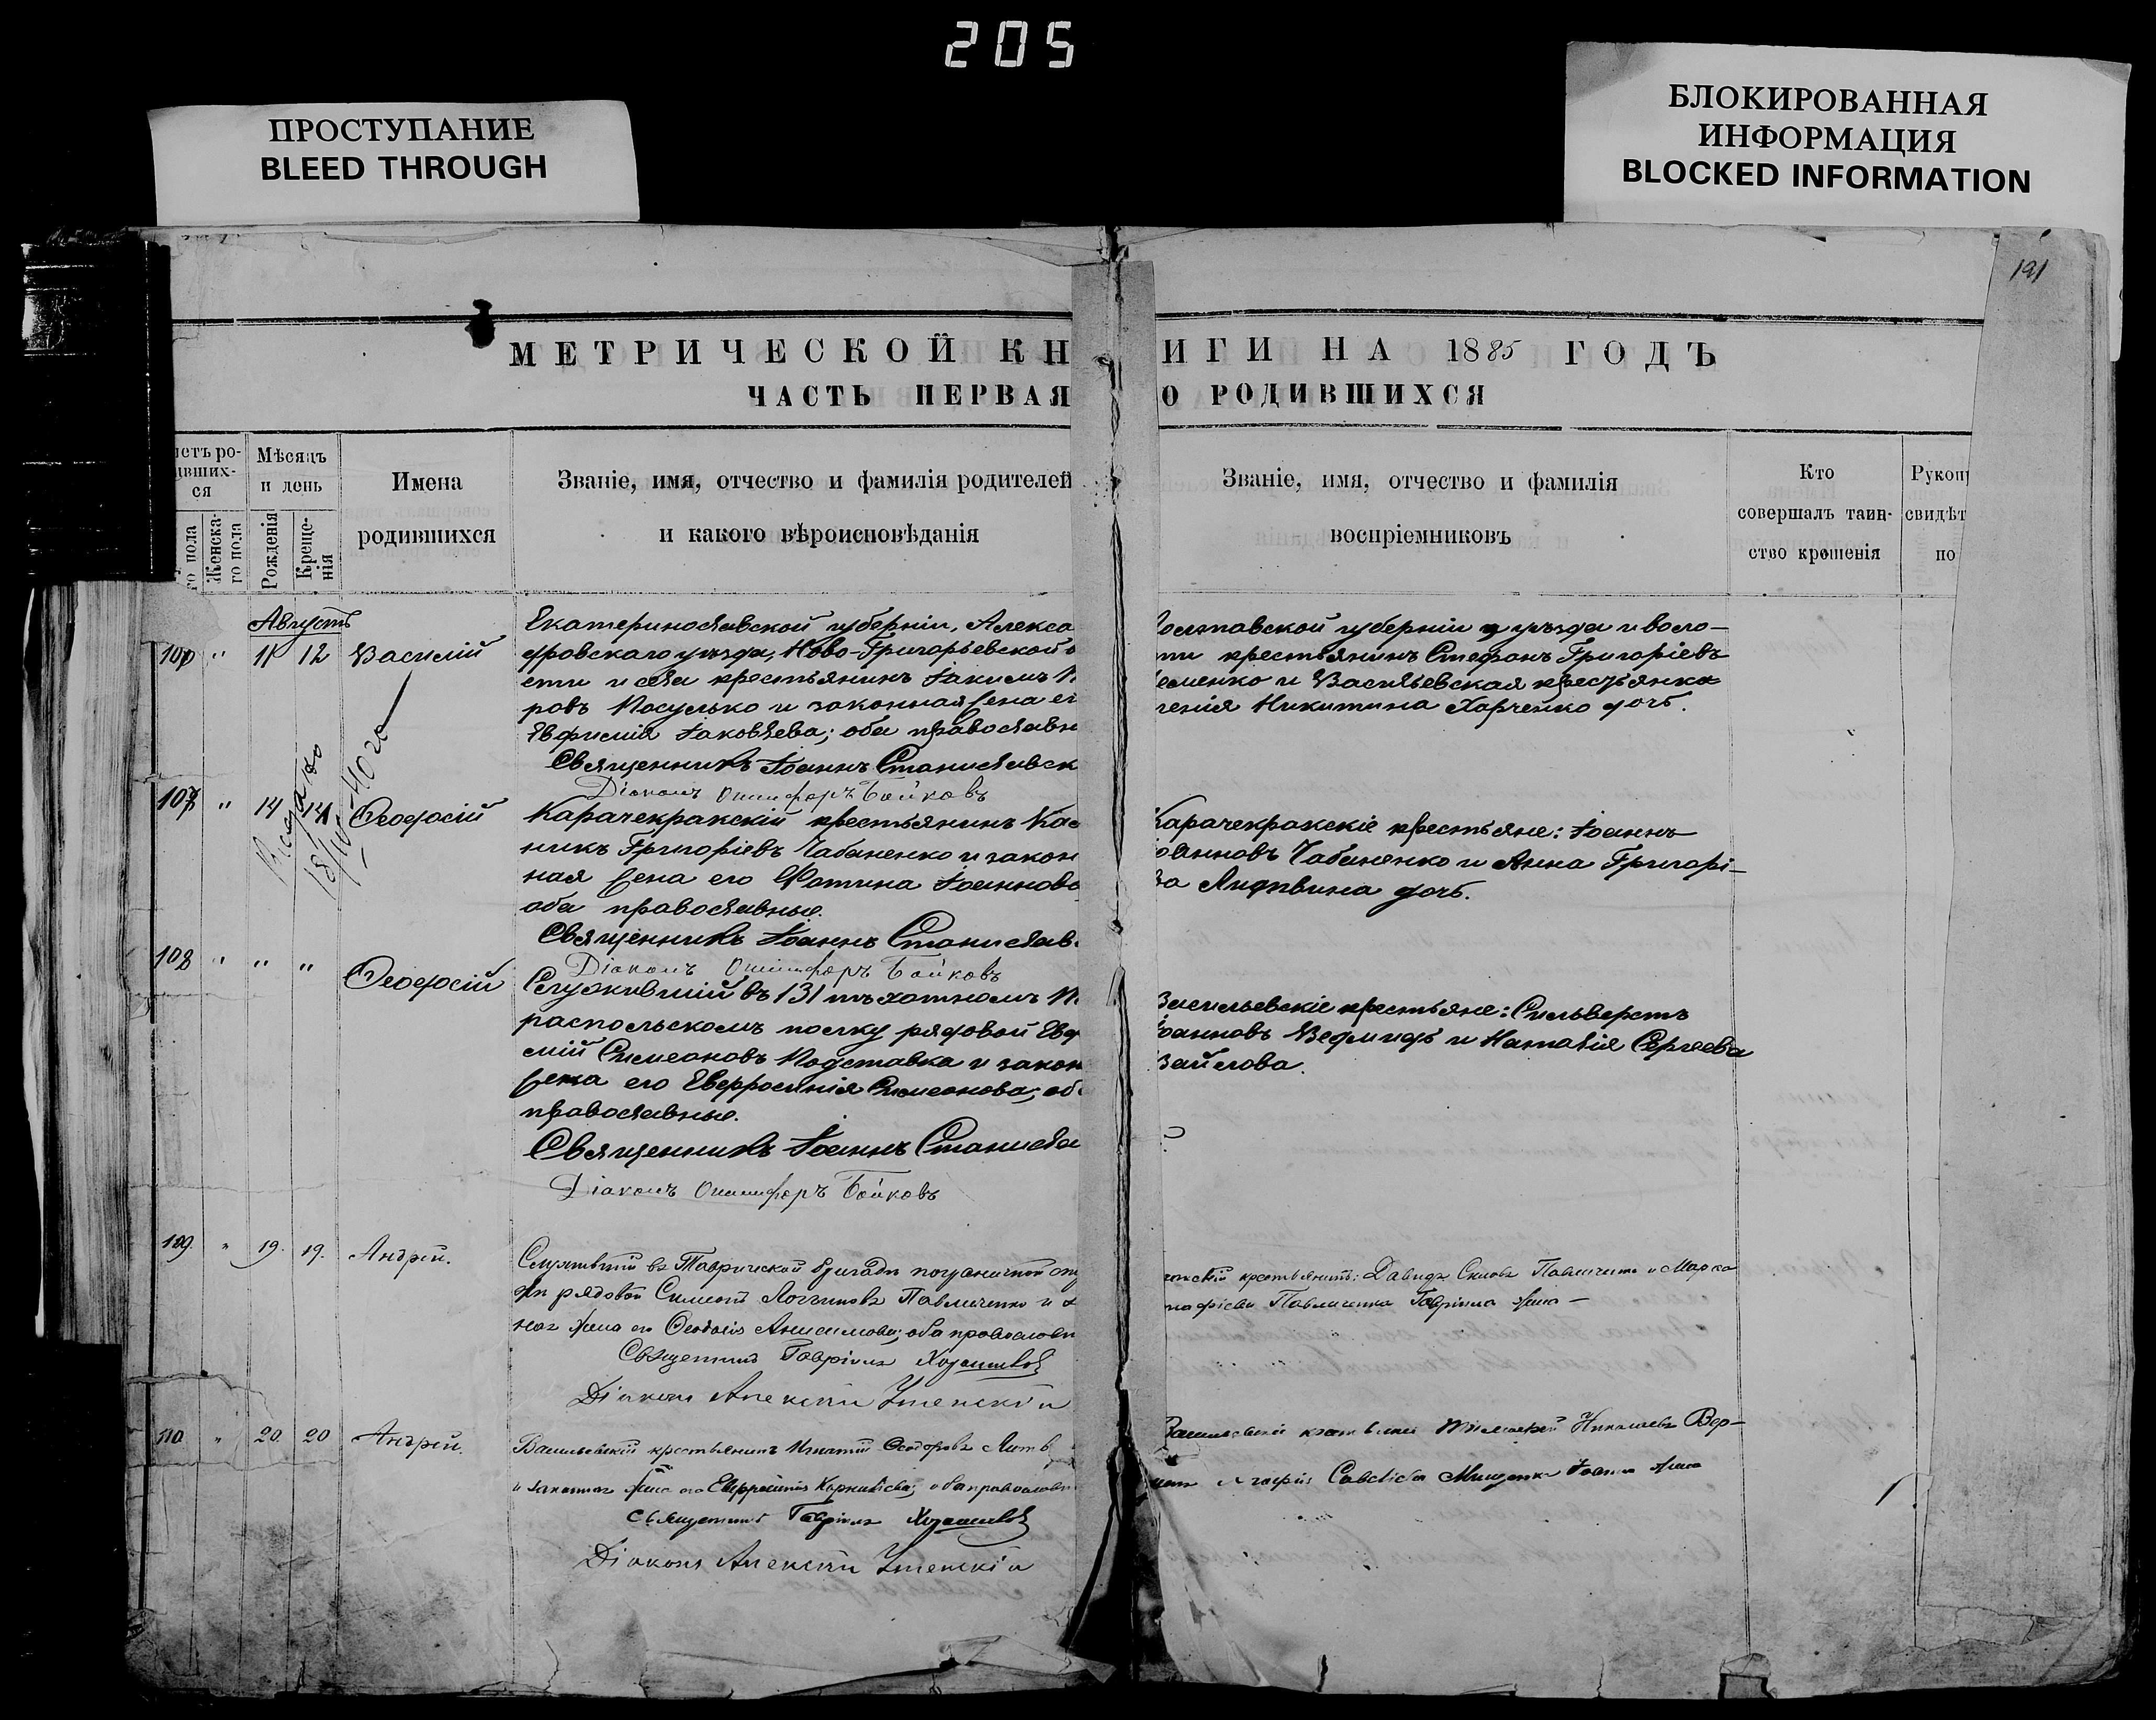 205
ПРОСТУПАНИЕ
BLEED THROUGH
БЛОКИРОВАННАЯ
ИНФОРМАЦИЯ
BLOCKED INFORMATION
191
МЕТРИЧЕСКОЙ КН
ИГИ НА 1885 ГОДЪ
ЧАСТЬ ПЕРВАЯ
О РОДИВШИХСЯ
етъ ро-
ивших-
ся
го пола
Женска-
го пола
Мѣсяцъ
и день
Рожденія
Креще-
нія
Имена
родившихся
Званіе, имя, отчество и фамилія родителей
и какого вѣроисповѣданія
Званіе, имя, отчество и фамилія
воспріемниковъ
Кто
совершалъ таин-
ство крещенія
Рукоп
свидѣт
по
Августъ
106 " 11 12 Василій
Екатеринославской губерніи, Алекса
дровскаго уѣзда, Ново-Григорьевской в
сти и села крестьянинъ Іакимъ
ровъ Посулько и законная жена ег
Евфимія Іаковлева; оба православн
Священникъ Іоаннъ Станиславск
Діаконъ Онисифоръ Бойковъ
олтавской губерніи уѣзда и воло-
ти крестьянинъ Стефанъ Григоріевъ
еменко и Васильевская крестьянка
генія Никитина Харченко дочь.
107 " 14 14 Ѳеодосій
Карачекракскій крестьянинъ Кас
никъ Григоріевъ Чабаненко и закон
ная жена его Фотина Іоаннова
оба православные.
Священникъ Іоаннъ Станислав
Діаконъ Онисифоръ Бойковъ
Карачекракскіе крестьяне: Іоаннъ
оанновъ Чабаненко и Анна Григорі-
ва Литвина дочь.
108 " " " Ѳеодосій
Служившій въ 131 пѣхотномъ
распольскомъ полку рядовой Евф
мій Симеоновъ Подставка и закон
жена его Евфросинія Симеонова; об
православные.
Священникъ Іоаннъ Станисла
Діаконъ Онисифоръ Бойковъ
Васильевскіе крестьяне: Сильверстъ
Іоанновъ Ведмидь и Наталія Сергѣева
109. " 19. 19. Андрей.
Служившій въ Таврической бригадѣ пограничной ст
жи рядовой Симеонъ Логгиновъ Павличенко и з
ная жена его Ѳеодосія Анисимова; оба православн
Священникъ Гавріилъ
Діаконъ Алексѣй
крестьянинъ: Давидъ Павличенко и Марѳа
Павличенка Гавріила жена —
110 " 20 20 Андрей.
Васильевскій крестьянинъ Игнатій Ѳеодоровъ Литв
и законная жена его Евфросинія Корниліева; оба православн
Священникъ Гавріилъ
Діаконъ Алексѣй
Николаевъ Вер-
Савеліева Мищенко Іоанна жена